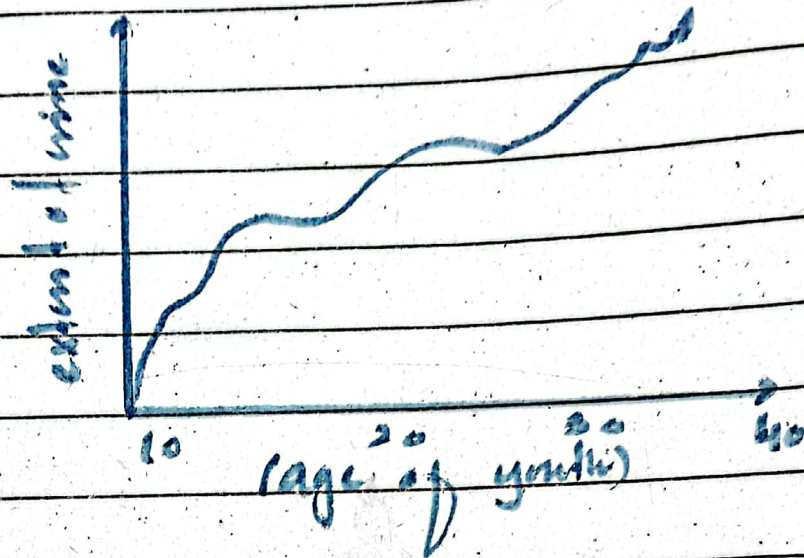 extent of crime
10 20 30 40
(age of youth)